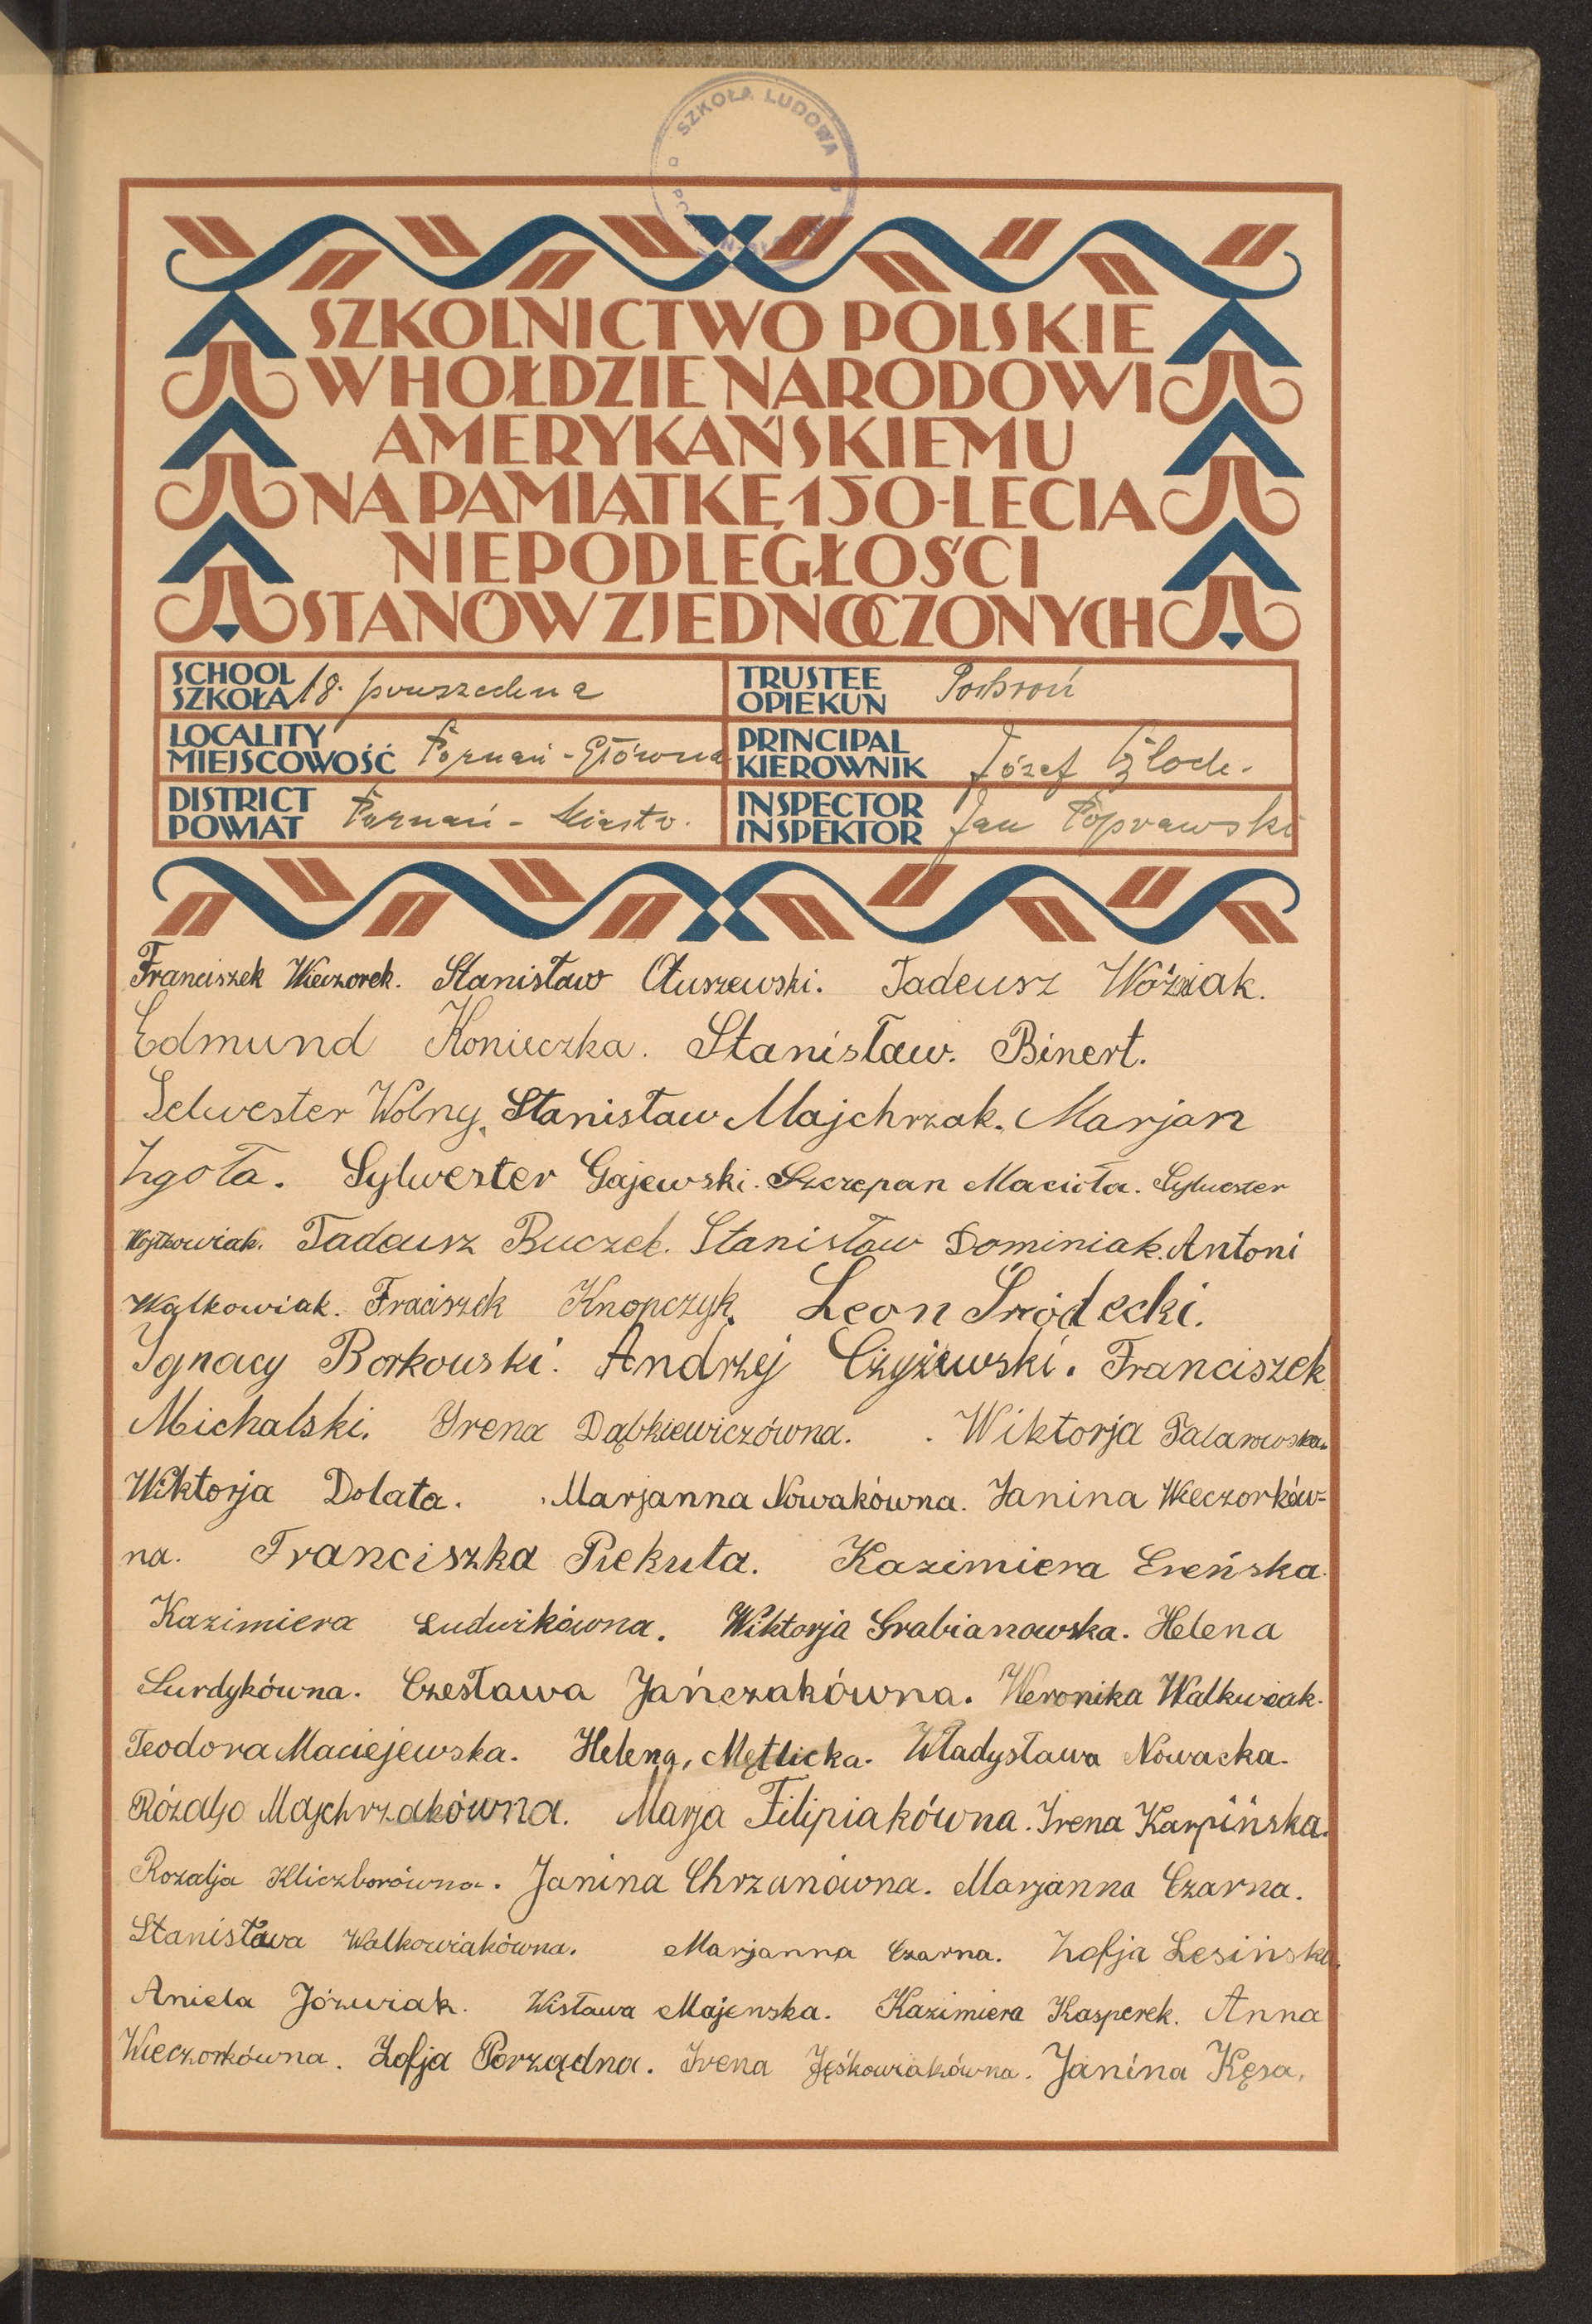 SZKOŁA LUDOWA
SZKOLNICTWO POLSKIE
W HOŁDZIE NARODOWI
AMERYKAŃSKIEMU
NA PAMIĄTKĘ 150-LECIA
NIEPODLEGŁOŚCI
STANÓW ZJEDNOCZONYCH
SCHOOL
SZKOŁA 18. powszechna
TRUSTEE
OPIEKUN Pochroń
LOCALITY
MIEJSCOWOŚĆ Poznań - Główna
PRINCIPAL
KIEROWNIK Józef
DISTRICT
POWIAT Poznań - Miasto.
INSPECTOR
INSPEKTOR Jan Poprawski
Franciszek Wieczorek. Stanisław Otuszewski. Tadeusz Woźniak.
Edmund Konieczka. Stanisław. Binert.
Selwester Wolny. Stanisław Majchrzak. Marjan
Zgoła. Sylwester Gajewski. Szczepan Macioła. Sylwester
Wojtkowiak. Tadeusz Buczek. Stanisław Dominiak. Antoni
Wałkowiak. Fraciszek Knopczyk. Leon Śródecki.
Ignacy Borkowski. Andrzej Czyżewski. Franciszek
Michalski. Irena Dąbkiewiczówna. Wiktorja
Wiktorja Dolata. Marjanna Nowakówna. Janina Wieczorków-
na. Franciszka Piekuta. Kazimiera Ereńska.
Kazimiera Ludwikówna. Wiktorja Grabianowska. Helena
Surdykówna. Czesława Jańczakówna. Weronika Walkwiak.
Teodora Maciejewska. Helena, Mętlicka. Władysława Nowacka.
Rózalja Majchrzakówna. Marja Filipiakówna. Irena Karpińska.
Rozalja Kliczborówna. Janina Chrzanówna. Marjanna Czarna.
Stanisława Walkowiakówna. Marjanna Czarna. Zofja Lesińska.
Aniela Józwiak. Wisława Majenska. Kazimiera Kasperek. Anna
Wieczorkówna. Zofja Porządna. Irena Jęśkowiakówna. Janina Kęsa.